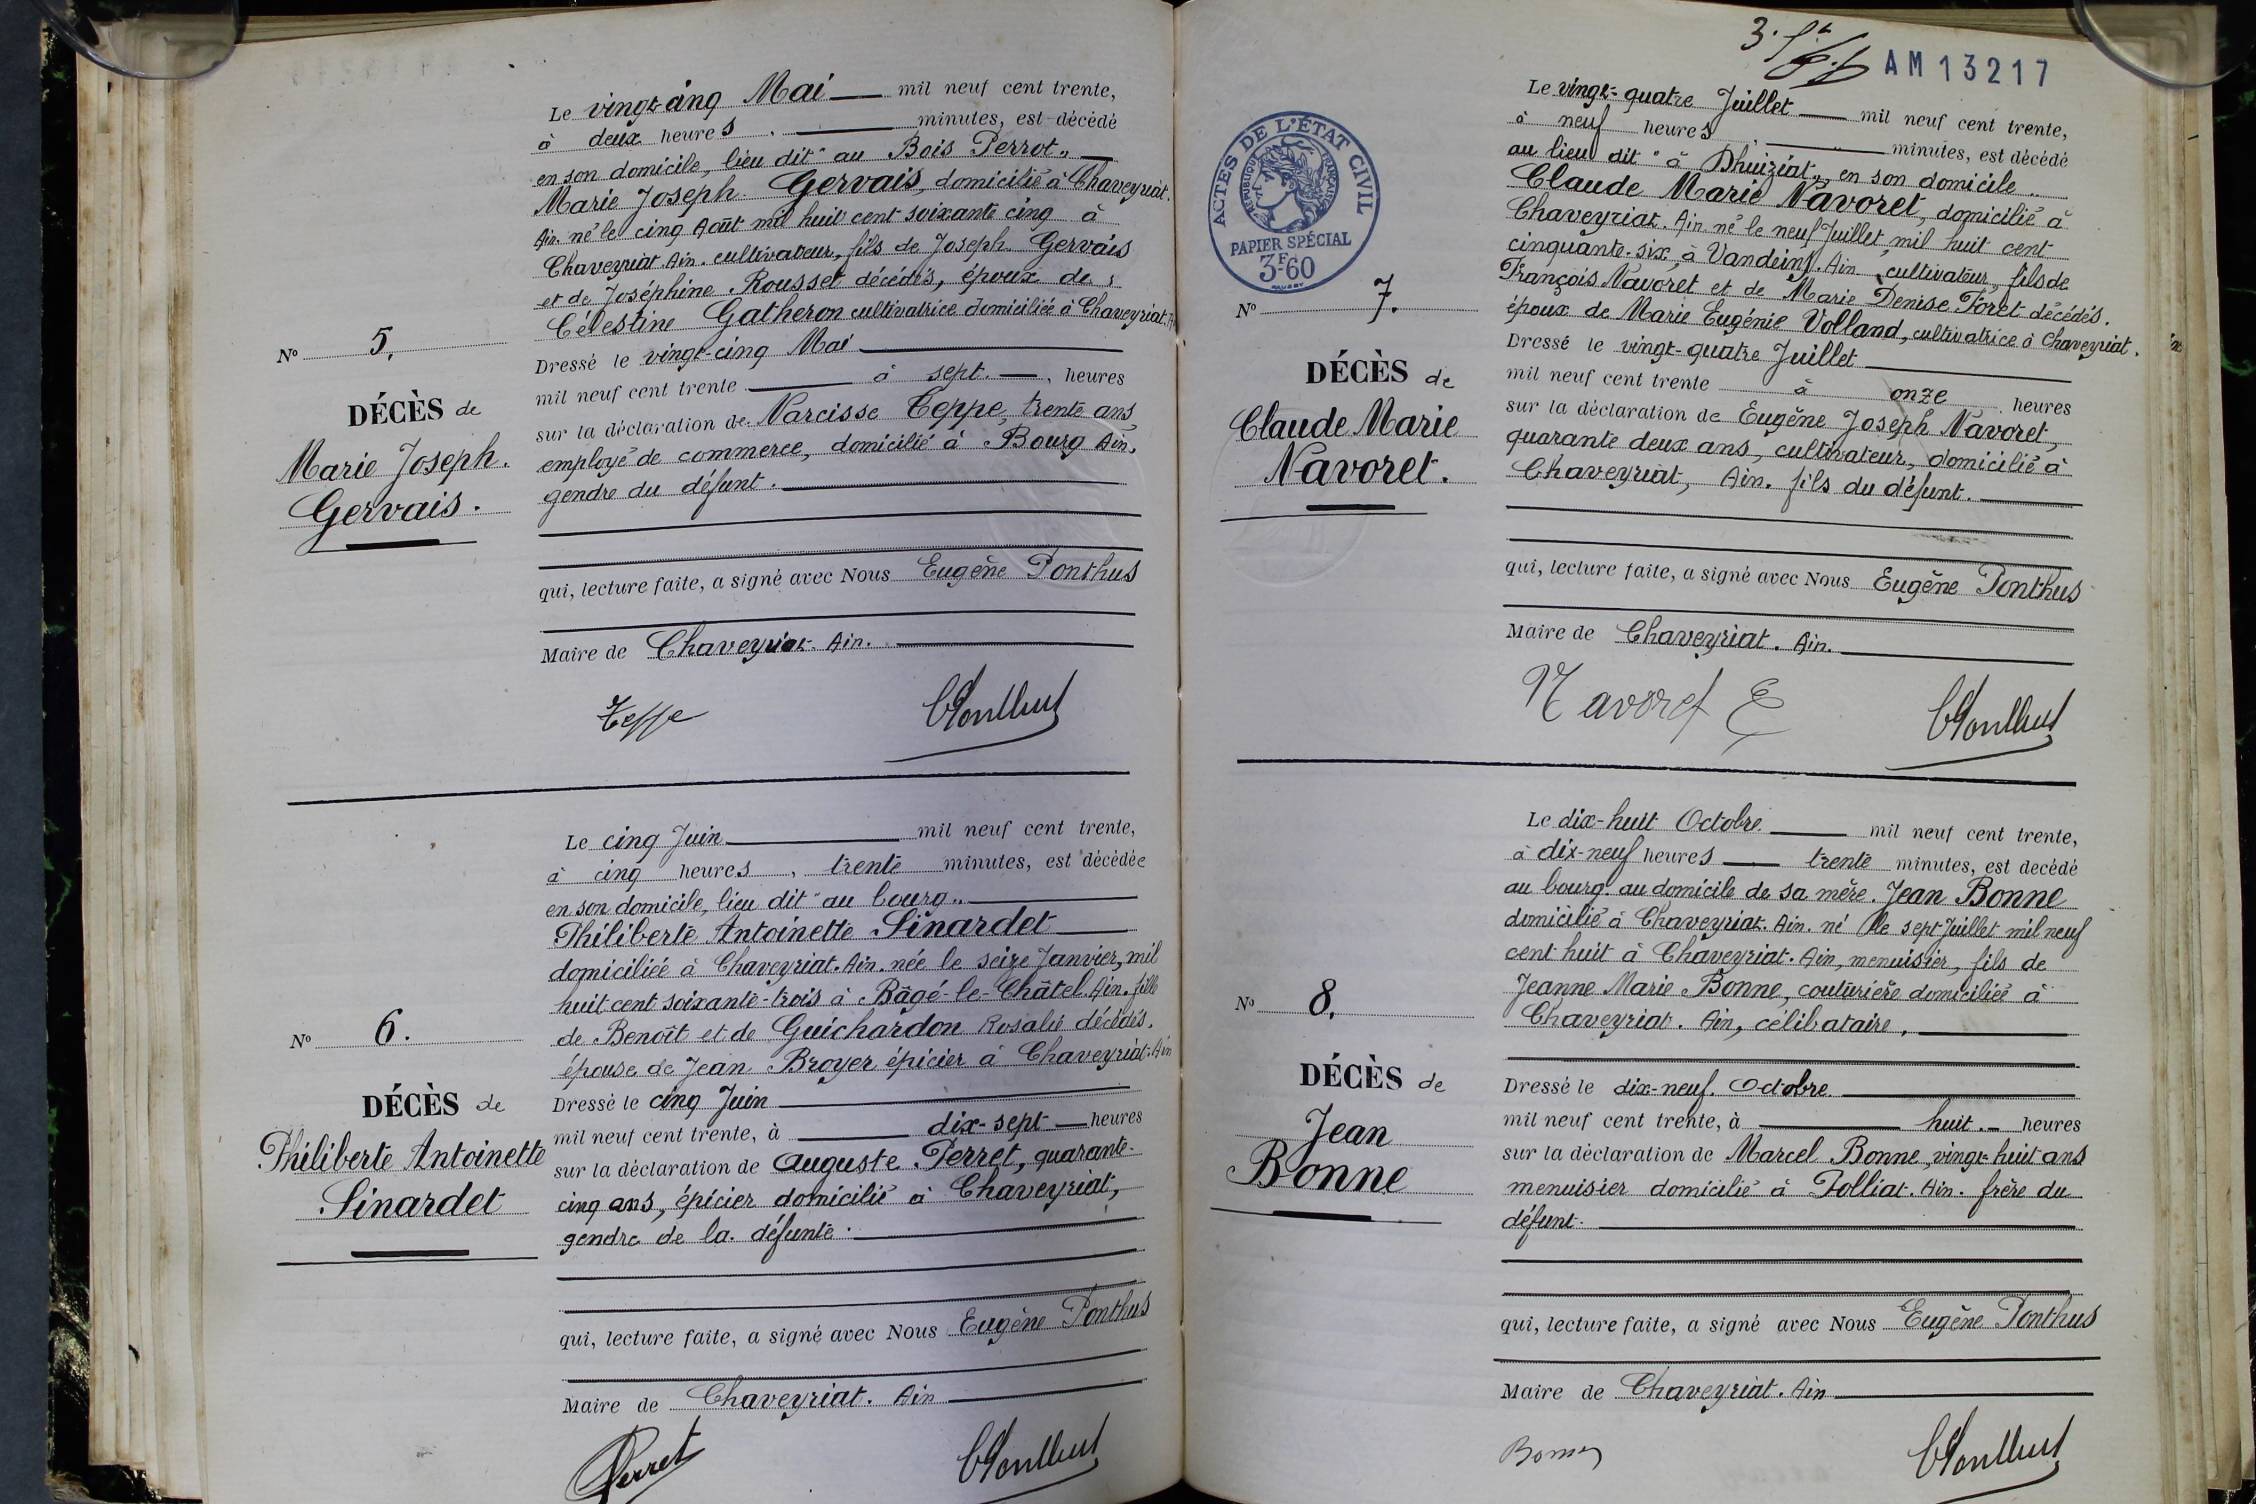 Le vingt-cinq Mai mil neuf cent trente,
à deux heures minutes, est décédé
en son domicile, lieu dit "au Bois Perrot"
Marie Joseph Gervais, domicilié à Chaveyriat.
Ain. né le cinq Août mil huit cent soixante cinq à
Chaveyriat Ain. cultivateur, fils de Joseph Gervais
et de Joséphine Rousset décédés, époux de
Célestine Gatheron cultivatrice domiciliée à Chaveyriat.
Nº 5.
DÉCÈS de
Marie Joseph.
Gervais.
Dressé le vingt-cinq Mai
mil neuf cent trente à sept. heures
sur la déclaration de Narcisse Teppe, trente ans,
employé de commerce, domicilié à Bourg Ain,
gendre du défunt.
qui, lecture faite, a signé avec Nous Eugène Ponthus
Maire de Chaveyriat. Ain.
Teppe EPonthus
Le cinq Juin mil neuf cent trente,
à cinq heures, trente minutes, est décédée
en son domicile, lieu dit "au bourg"
Philiberte Antoinette Sinardet
domiciliée à Chaveyriat. Ain. née le seize Janvier, mil
huit cent soixante-trois à Bâgé-le-Châtel. Ain. fille
de Benoît et de Guichardon Rosalie décédés.
épouse de Jean Broyer épicier à Chaveyriat. Ain
Nº 6.
DÉCÈS de
Philiberte Antoinette
Sinardet
Dressé le cinq Juin
mil neuf cent trente, à dix-sept heures
sur la déclaration de Auguste Perret, quarante-
cinq ans, épicier domicilié à Chaveyriat,
gendre de la défunte.
qui, lecture faite, a signé avec Nous Eugène Ponthus
Maire de Chaveyriat. Ain
Perret EPonthus
AM 13217
ACTES DE L'ÉTAT CIVIL
RÉPUBLIQUE FRANÇAISE
PAPIER SPÉCIAL
3F60
Le vingt-quatre Juillet mil neuf cent trente,
à neuf heures minutes, est décédé
au lieu dit "à Dhuiziat", en son domicile.
Claude Marie Navoret, domicilié à
Chaveyriat. Ain né le neuf Juillet mil huit cent
cinquante-six, à Vandeins. Ain, cultivateur, fils de
François Navoret et de Marie Denise Foret décédés.
époux de Marie Eugénie Volland, cultivatrice à Chaveyriat.
Nº 7.
DÉCÈS de
Claude Marie
Navoret.
Dressé le vingt-quatre Juillet
mil neuf cent trente à onze heures
sur la déclaration de Eugène Joseph Navoret,
quarante deux ans, cultivateur, domicilié à
Chaveyriat, Ain. fils du défunt.
qui, lecture faite, a signé avec Nous Eugène Ponthus
Maire de Chaveyriat. Ain.
Navoret E EPonthus
Le dix-huit Octobre mil neuf cent trente,
à dix-neuf heures trente minutes, est décédé
au bourg. au domicile de sa mère. Jean Bonne
domicilié à Chaveyriat. Ain. né le sept Juillet mil neuf
cent huit à Chaveyriat. Ain, menuisier, fils de
Jeanne Marie Bonne, couturière domiciliée à
Chaveyriat. Ain, célibataire,
Nº 8.
DÉCÈS de
Jean
Bonne
Dressé le dix-neuf. Octobre
mil neuf cent trente, à huit. heures
sur la déclaration de Marcel Bonne, vingt-huit ans
menuisier domicilié à Polliat. Ain. frère du
défunt.
qui, lecture faite, a signé avec Nous Eugène Ponthus
Maire de Chaveyriat. Ain
Bonne EPonthus